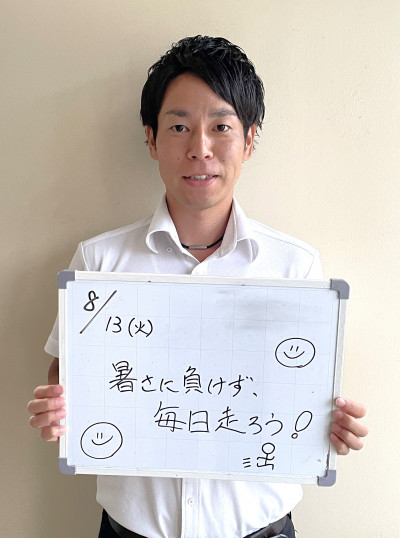 8/13(火)
暑さに負けず、
毎日走ろう!